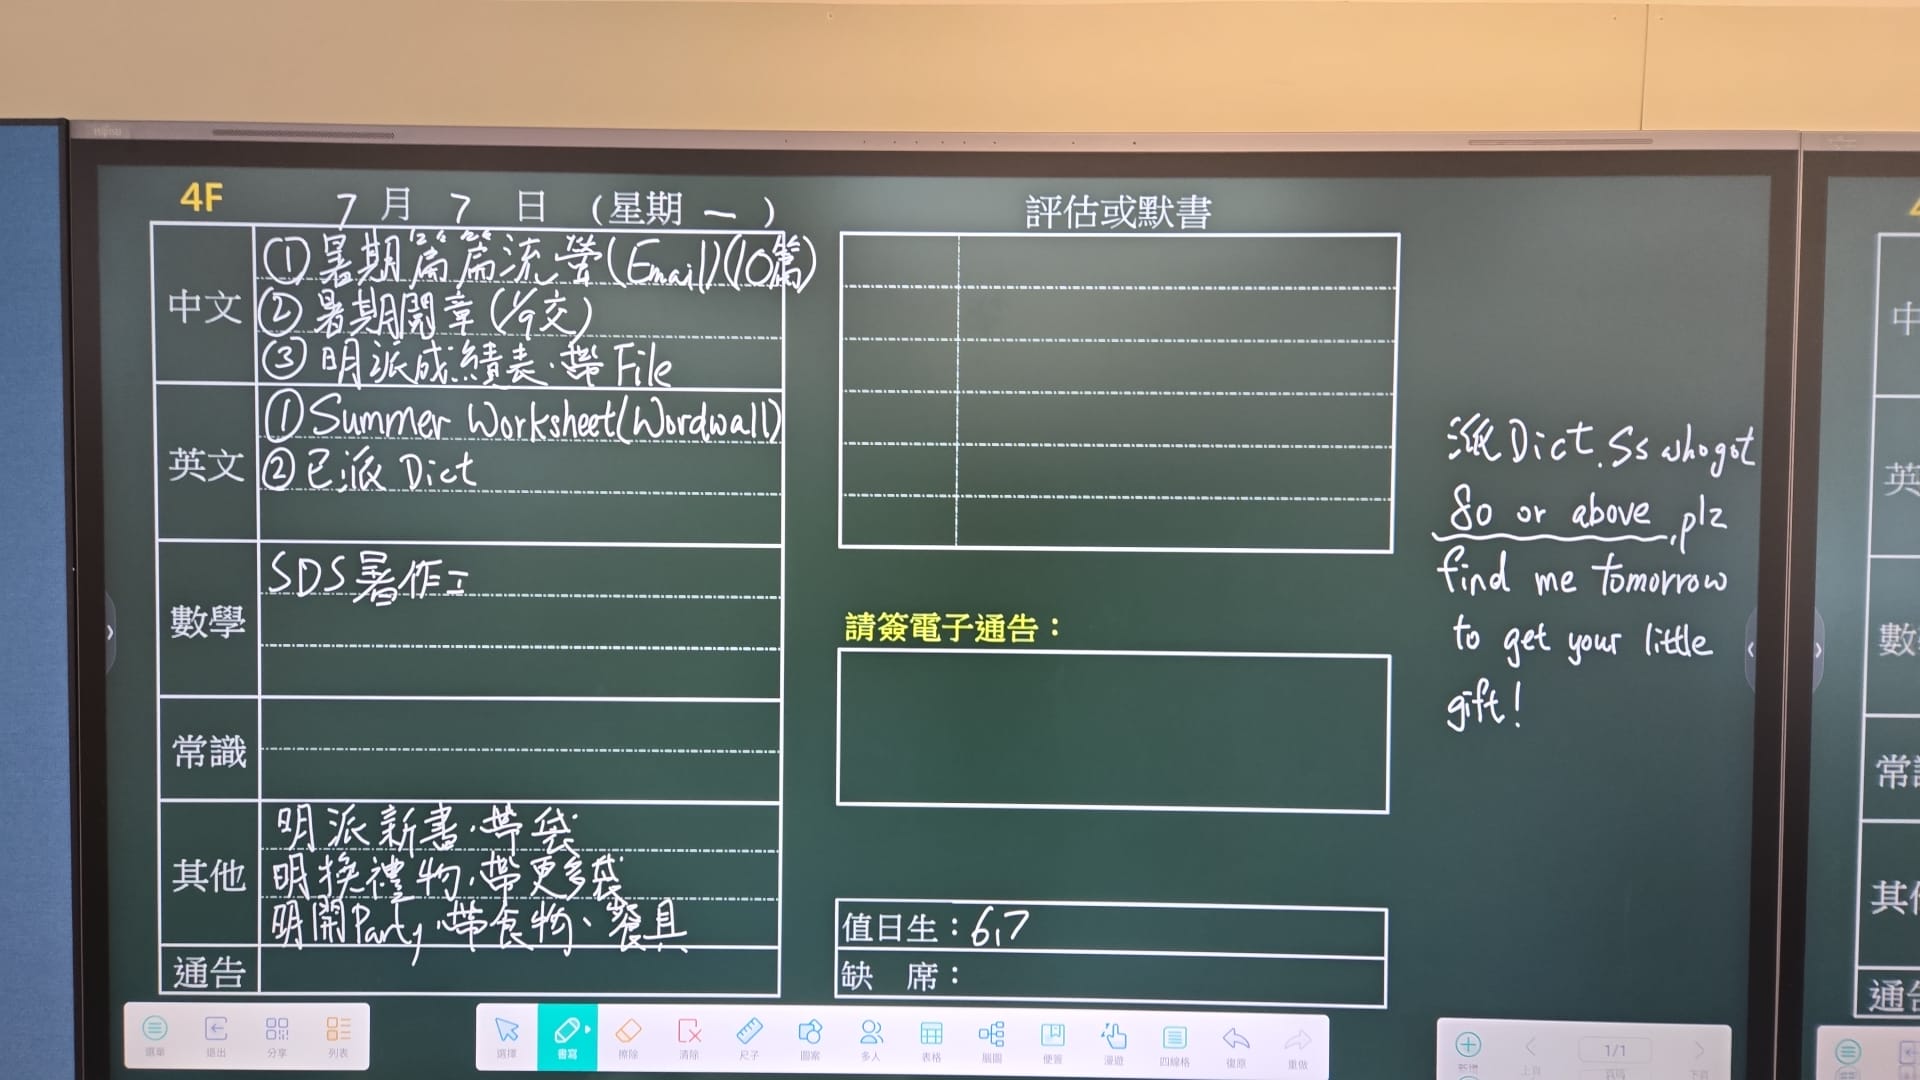 4F 7月7日(星期一)
中文
①暑期篇篇流螢(Email)(10篇)
②暑期開章(1/9交)
③明派成績表,帶File
英文
①Summer Worksheet(Wordwall)
②已派 Dict
數學
SDS暑作工
常識
其他
明派新書,帶袋
明換禮物,帶更多袋
明開Party,帶食物、餐具
通告
評估或默書
請簽電子通告:
值日生:6,7
缺 席:
派Dict. Ss who got
80 or above, plz
find me tomorrow
to get your little
gift!
中
英
數
常
其
通
選單 退出 分享 列表
選擇 書寫 擦除 清除 尺子 圖案 多人 表格 腦圖 便簽 漫遊 四線格 復原 重做
1/1